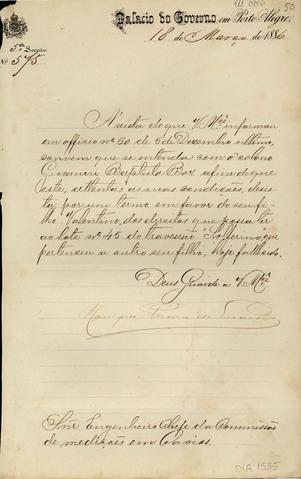 Palacio do Governo em Porto Alegre,
18 de Março de 1886.
5ª Secção
Nº 575
50
Á vista do que V. Mcê informou
em officio nº 60 de 5 de Dezembro ultimo,
convem que se entenda com o colono
Giovanni Baptista Boz afim de que
este, attentas as suas condições, desis-
ta, por um termo, em favor do seu fi-
lho Valentino, dos direitos que possa ter
ao lote nº 45 do travessão "Solferino" que
pertenceu a outro seu filho, hoje fallecido.
Deus Guarde a V. Mcê
Snr Engenheiro Chefe da Commissão
de medições em Caxias.
DIR 1535